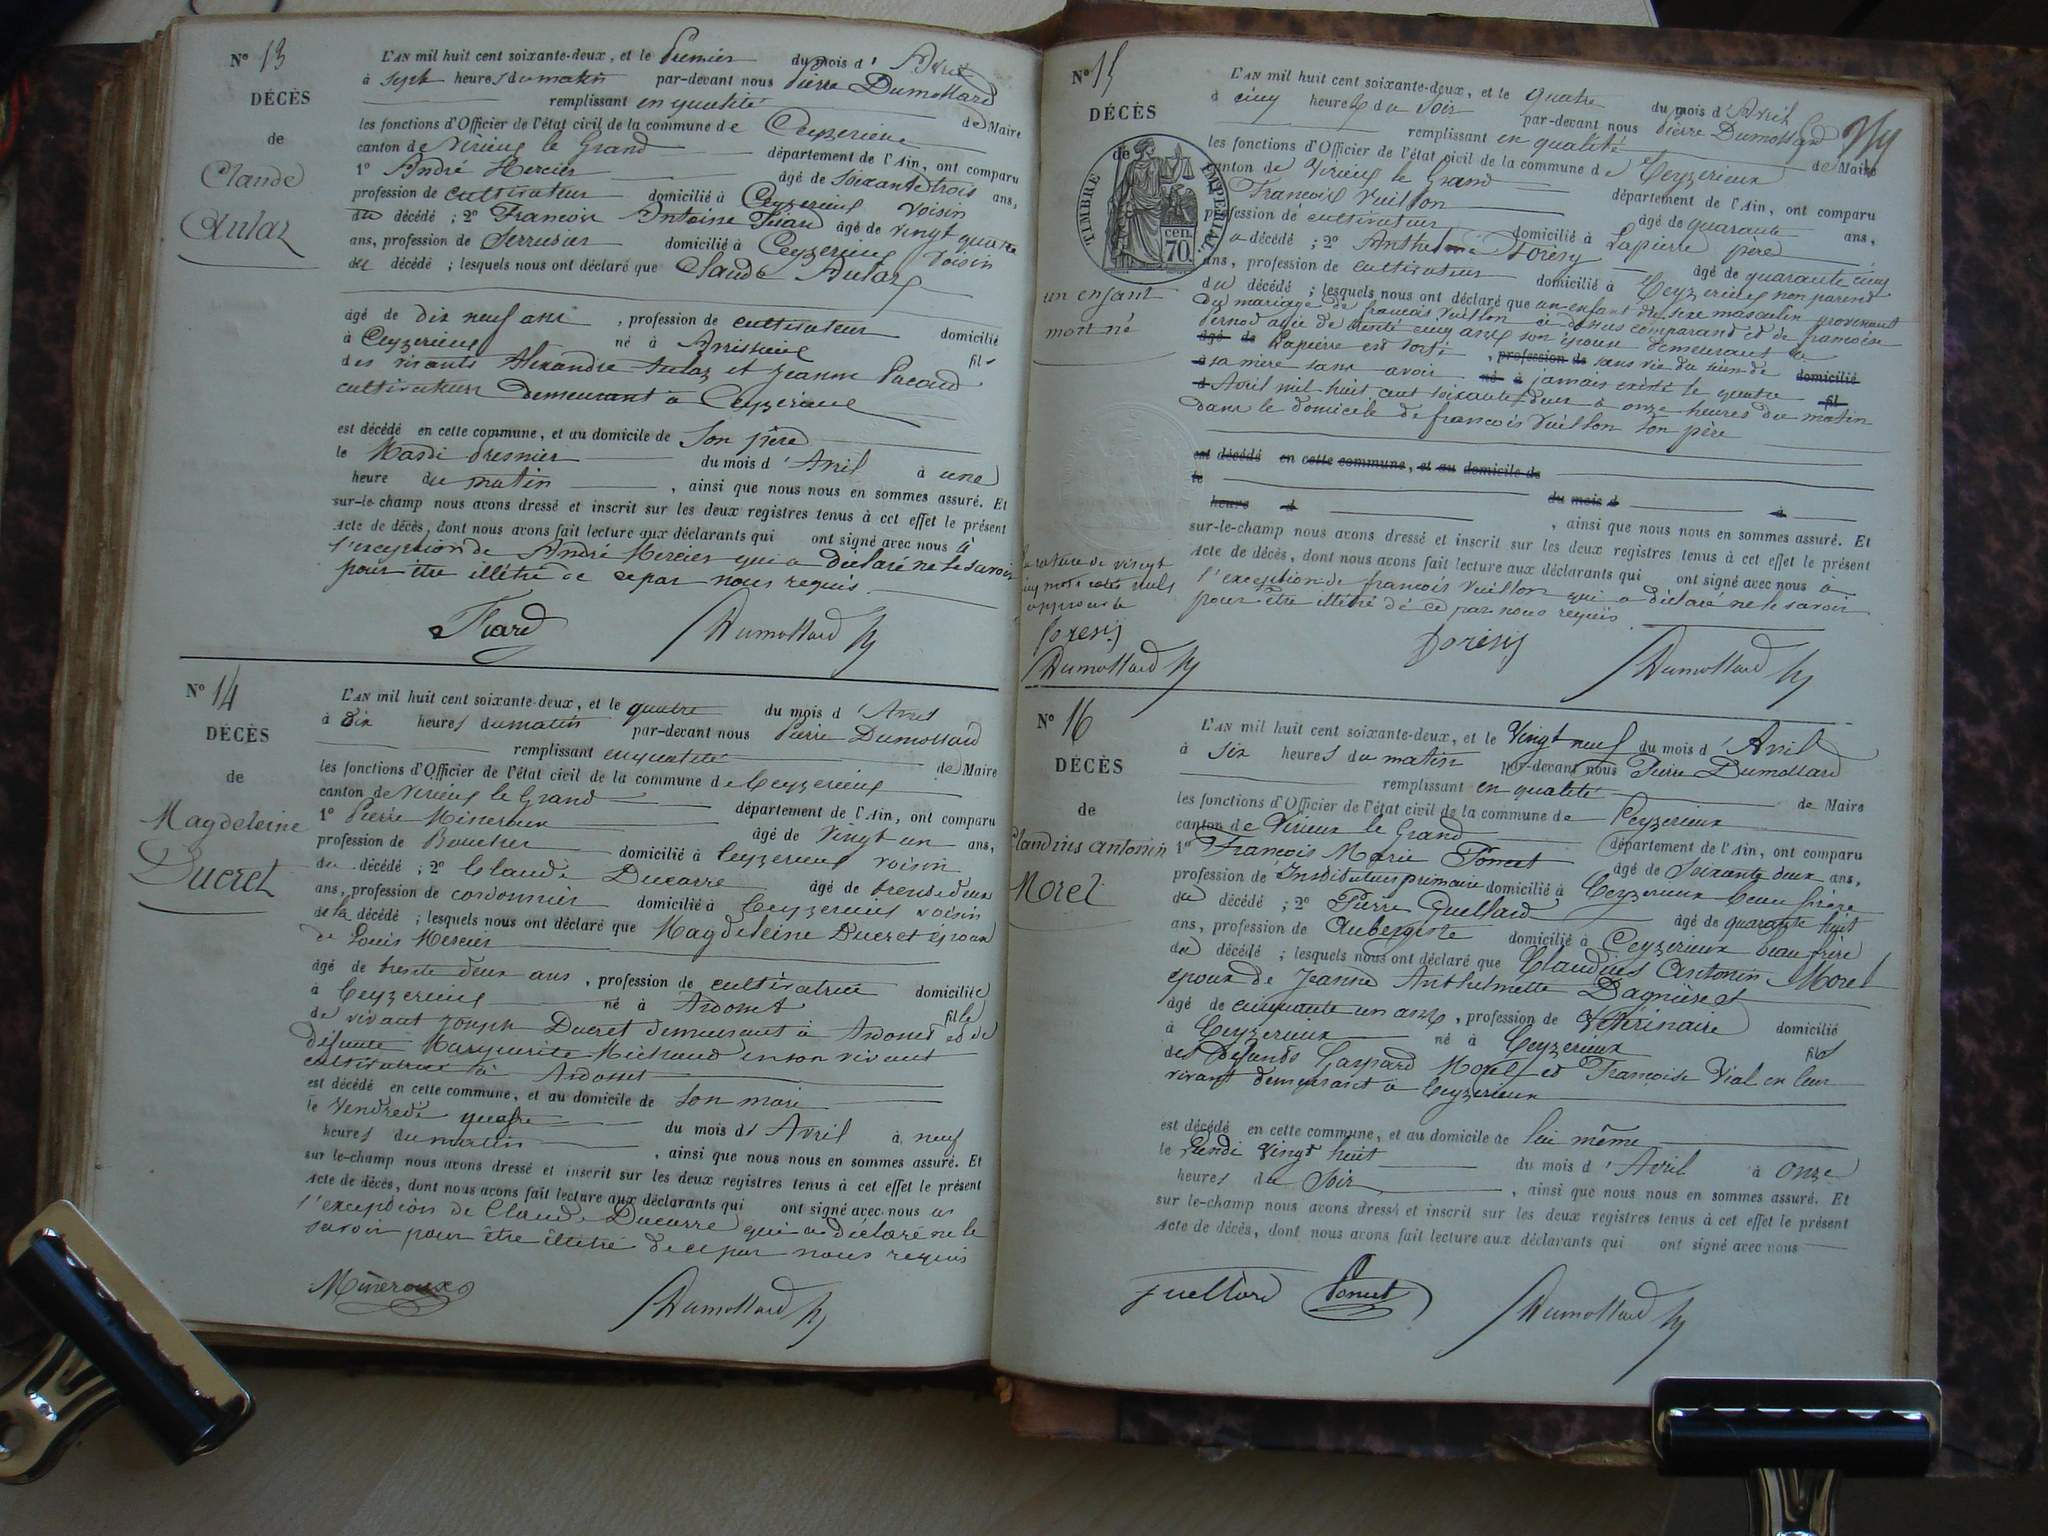 N° 13
DÉCÈS
de
Claude
Aulaz
L'AN mil huit cent soixante-deux, et le Premier du mois d'Avril
à sept heures du matin par-devant nous Pierre Dumollard
remplissant en qualité de Maire
les fonctions d'Officier de l'état civil de la commune de Ceyzerieux
canton de Virieux le Grand département de l'Ain, ont comparu
1° André Mercier âgé de soixante trois ans,
profession de cultivateur domicilié à Ceyzerieux voisin
du décédé ; 2° François Antoine Fiard âgé de vingt quatre
ans, profession de Serrurier domicilié à Ceyzerieux voisin
du décédé ; lesquels nous ont déclaré que Claude Aulaz
âgé de dix neuf ans , profession de cultivateur domicilié
à Ceyzerieux né à fils
des vivants Alexandre Aulaz et Jeanne Pacoud
cultivateurs demeurant à Ceyzerieux
est décédé en cette commune, et au domicile de Son père
le Mardi premier du mois d'Avril à une
heure du matin , ainsi que nous nous en sommes assuré. Et
sur-le-champ nous avons dressé et inscrit sur les deux registres tenus à cet effet le présent
Acte de décès, dont nous avons fait lecture aux déclarants qui ont signé avec nous à
l'exception de André Mercier qui a déclaré ne le savoir
pour être illétré de ce par nous requis
Fiard Dumollard
N° 14
DÉCÈS
de
Magdeleine
Ducret
L'AN mil huit cent soixante-deux, et le quatre du mois d'Avril
à dix heures du matin par-devant nous Pierre Dumollard
remplissant en qualité de Maire
les fonctions d'Officier de l'état civil de la commune de Ceyzerieux
canton de Virieux le Grand département de l'Ain, ont comparu
1° Pierre Mineroux âgé de vingt un ans,
profession de Boucher domicilié à Ceyzerieux voisin
du décédé ; 2° Claude Ducarre âgé de trente deux
ans, profession de cordonnier domicilié à Ceyzerieux voisin
de la décédé ; lesquels nous ont déclaré que Magdeleine Ducret épouse
de Louis Mercier
âgé de trente deux ans , profession de cultivatrice domicilié
à Ceyzerieux né à Ardosset fille
de vivant Joseph Ducret demeurant à Ardosset et de
défunte Marguerite Michaud en son vivant
cultivatrice à Ardosset
est décédé en cette commune, et au domicile de Son mari
le Vendredi quatre du mois d'Avril à neuf
heures du matin , ainsi que nous nous en sommes assuré. Et
sur le-champ nous avons dressé et inscrit sur les deux registres tenus à cet effet le présent
Acte de décès, dont nous avons fait lecture aux déclarants qui ont signé avec nous à
l'exception de Claude Ducarre qui a déclaré ne le
savoir pour être illétré de ce par nous requis
Mineroux Dumollard
N° 15
DÉCÈS
de
TIMBRE IMPERIAL
70 cen.
un enfant
mort né
L'AN mil huit cent soixante-deux, et le quatre du mois d'Avril
à cinq heures du soir par-devant nous Pierre Dumollard
remplissant en qualité de Maire
les fonctions d'Officier de l'état civil de la commune de Ceyzerieux
canton de Virieux le Grand département de l'Ain, ont comparu
François Vuillon âgé de quarante ans,
profession de cultivateur domicilié à Lapierre père
décédé ; 2° Anthelme Dorésy âgé de quarante cinq
ans, profession de cultivateur domicilié à Ceyzerieux non parent
du décédé ; lesquels nous ont déclaré que un enfant du sexe masculin provenant
du mariage de françois Vuillon ci-dessus comparant et de françoise
Pernod agée de trente cinq ans son épouse demeurant à
âgé de Lapierre est sorti , profession de sans vie du sein de domicilié
à sa mère sans avoir né à jamais existé le quatre fil
d Avril mil huit cent soixante deux à onze heures du matin
dans le domicile de françois Vuillon son père
est décédé en cette commune, et au domicile de
le du mois d à
heure d , ainsi que nous nous en sommes assuré. Et
sur-le-champ nous avons dressé et inscrit sur les deux registres tenus à cet effet le présent
Acte de décès, dont nous avons fait lecture aux déclarants qui ont signé avec nous à
l'exception de françois Vuillon qui a déclaré ne le savoir
pour être illétré de ce par nous requis
la rature de vingt
cinq mots nuls
approuvée
Dorésy
Dumollard
Dorésy Dumollard
N° 16
DÉCÈS
de
Claudius antonin
Morel
L'AN mil huit cent soixante-deux, et le Vingt neuf du mois d'Avril
à six heures du matin par-devant nous Pierre Dumollard
remplissant en qualité de Maire
les fonctions d'Officier de l'état civil de la commune de Ceyzerieux
canton de Virieux le Grand département de l'Ain, ont comparu
1° François Marie Poncet âgé de Soixante deux ans,
profession de Instituteur primaire domicilié à Ceyzerieux beau frère
du décédé ; 2° Pierre Guellard âgé de quarante huit
ans, profession de Aubergiste domicilié à Ceyzerieux beau frère
du décédé ; lesquels nous ont déclaré que Claudius Antonin Morel
époux de Jeanne Anthelmette
âgé de cinquante un ans , profession de Vétérinaire domicilié
à Ceyzerieux né à Ceyzerieux fils
des défunts Gaspard Morel et Françoise Vial en leur
vivant demeurant à Ceyzerieux
est décédé en cette commune, et au domicile de lui même
le Lundi vingt huit du mois d'Avril à onze
heures du Soir , ainsi que nous nous en sommes assuré. Et
sur le-champ nous avons dressé et inscrit sur les deux registres tenus à cet effet le présent
Acte de décès, dont nous avons fait lecture aux déclarants qui ont signé avec nous
Guellard Poncet Dumollard